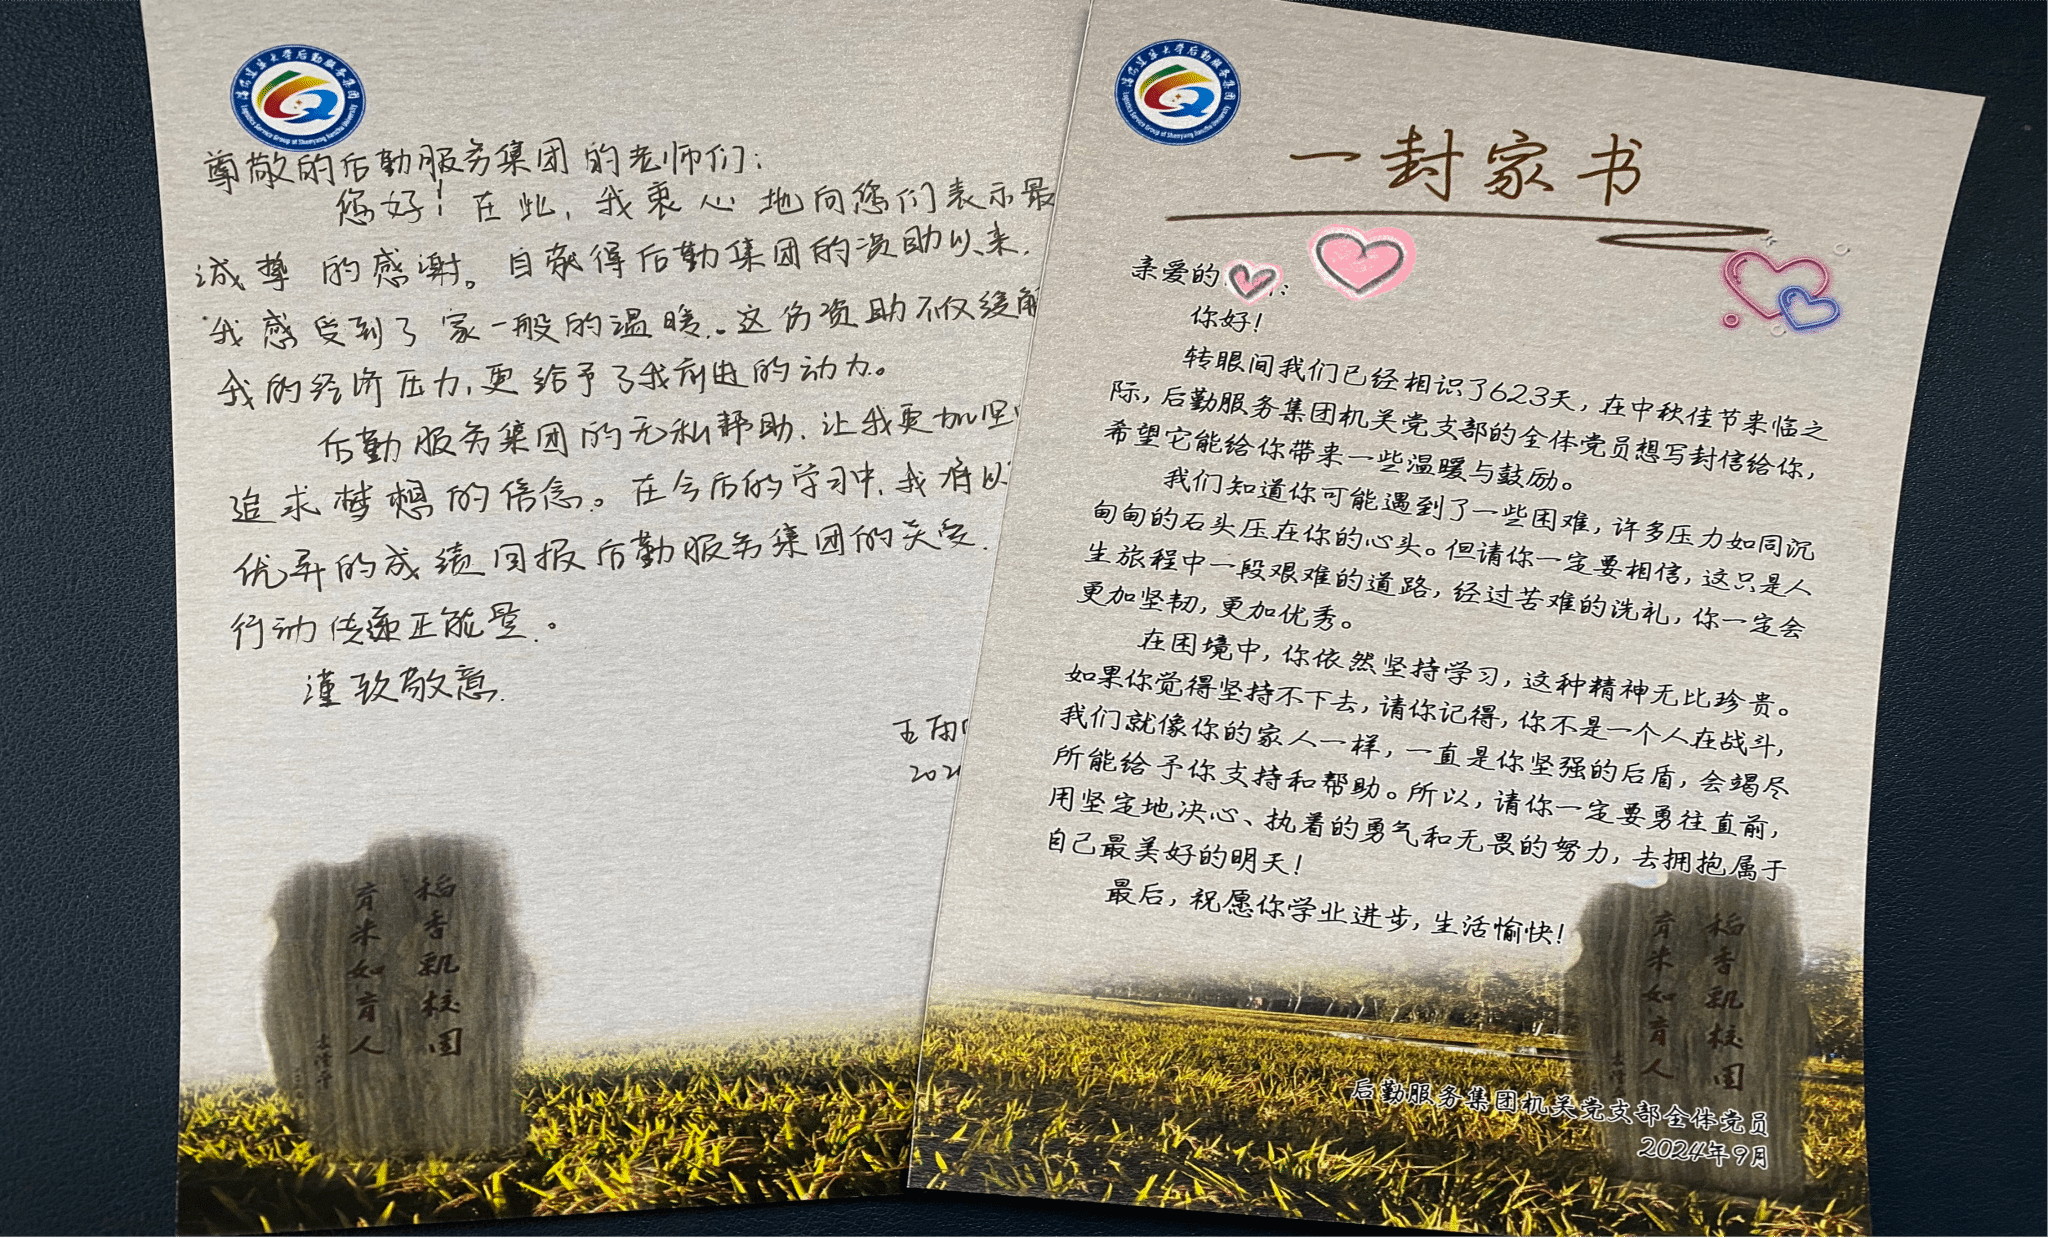 沈阳建筑大学后勤服务集团
Logistics Service Group of Shenyang Jianzhu University
尊敬的后勤服务集团的老师们：
您好！在此，我衷心地向您们表示最
诚挚的感谢。自获得后勤集团的资助以来，
我感受到了家一般的温暖。这份资助不仅缓解
我的经济压力，更给予了我前进的动力。
后勤服务集团的无私帮助，让我更加坚
追求梦想的信念。在今后的学习中，我将以
优异的成绩回报后勤服务集团的关爱，
行动传递正能量。
谨致敬意
王
202
稻香飘校园
育米如育人
袁隆平
沈阳建筑大学后勤服务集团
Logistics Service Group of Shenyang Jianzhu University
一封家书
亲爱的：
你好！
转眼间我们已经相识了623天，在中秋佳节来临之
际，后勤服务集团机关党支部的全体党员想写封信给你，
希望它能给你带来一些温暖与鼓励。
我们知道你可能遇到了一些困难，许多压力如同沉
甸甸的石头压在你的心头。但请你一定要相信，这只是人
生旅程中一段艰难的道路，经过苦难的洗礼，你一定会
更加坚韧，更加优秀。
在困境中，你依然坚持学习，这种精神无比珍贵。
如果你觉得坚持不下去，请你记得，你不是一个人在战斗，
我们就像你的家人一样，一直是你坚强的后盾，会竭尽
所能给予你支持和帮助。所以，请你一定要勇往直前，
用坚定地决心、执着的勇气和无畏的努力，去拥抱属于
自己最美好的明天！
最后，祝愿你学业进步，生活愉快！
稻香飘校园
育米如育人
后勤服务集团机关党支部全体党员
2024年9月